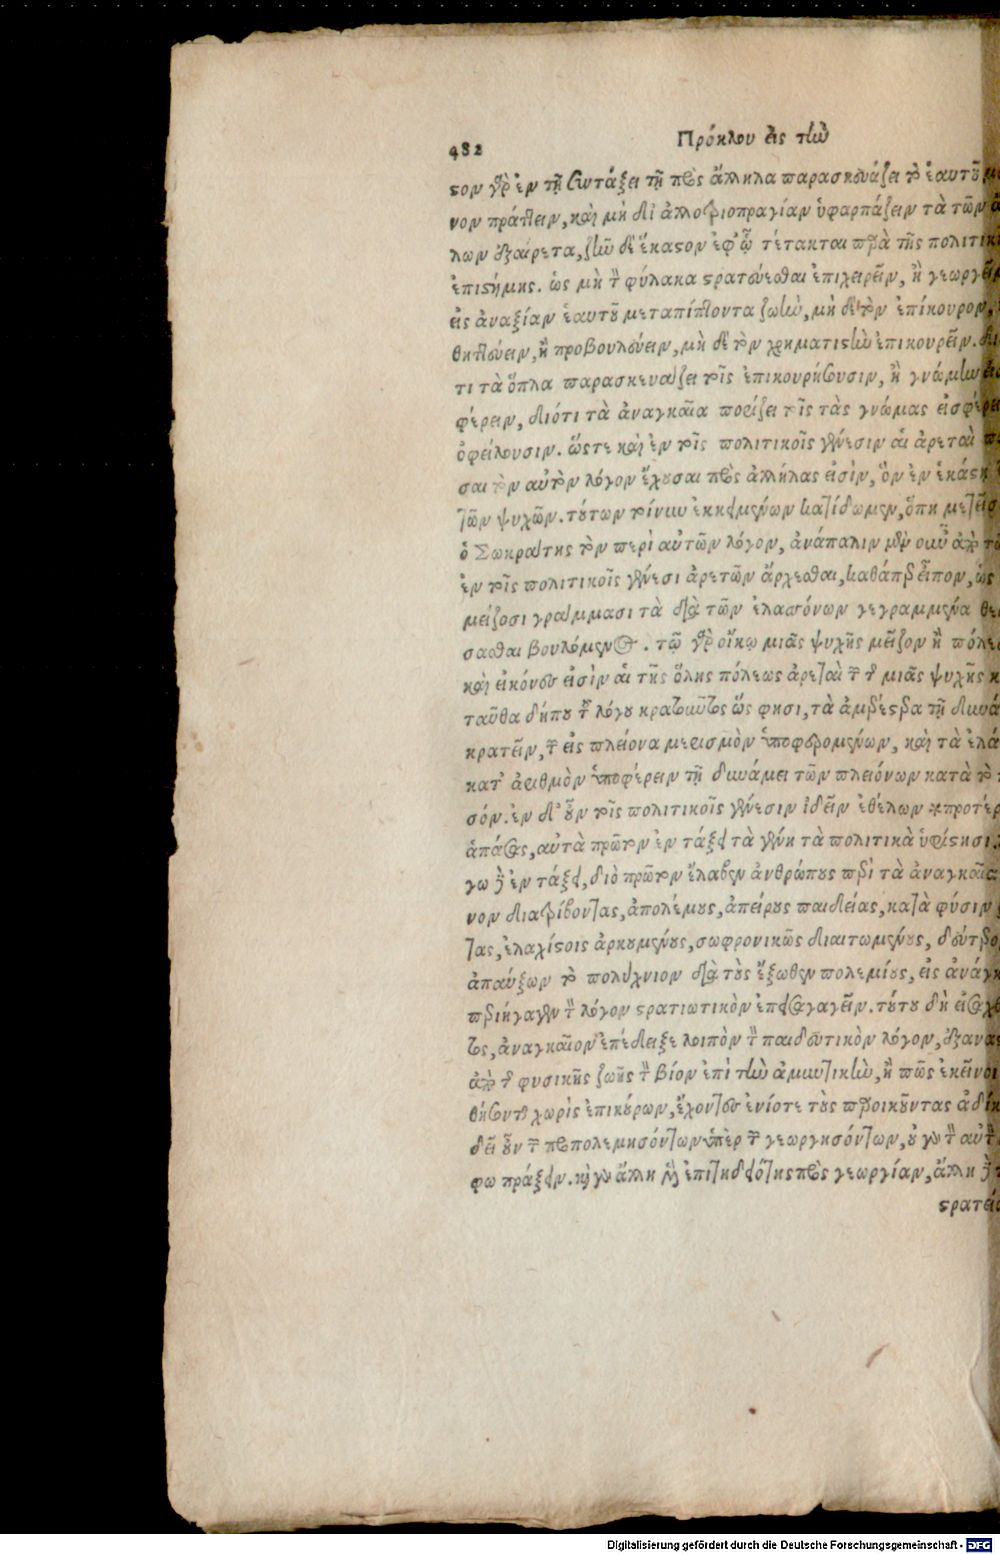 482 Πρόκλου εἰς τὴν
στον γὰρ ἐν τῇ συντάξει τῇ πρὸς ἄλληλα παρασκευάζει τὸ ἑαυτοῦ
νον πράττειν, καὶ μὴ δι' ἀλλοτριοπραγίαν ὑφαρπάζειν τὰ τῶν
λων ἐξαίρετα, ζῆν δὲ ἕκαστον ἐφ' ᾧ τέτακται παρὰ τῆς
ἐπιστήμης. ὡς μὴ τὸν φύλακα στρατεύεσθαι ἐπιχειρεῖν, ἢ
εἰς ἀναξίαν ἑαυτοῦ μεταπίπτοντα ζωὴν, μὴ δὲ τὸν ἐπίκουρον,
θητεύειν, ἢ προβουλεύειν, μὴ δὲ τὸν χρηματιστὴν ἐπικουρεῖν.
τι τὰ ὅπλα παρασκευάζει τοῖς ἐπικουρήσουσιν, ἢ γνώμην
φέρειν, διότι τὰ ἀναγκαῖα πορίζει τοῖς τὰς γνώμας
ὀφείλουσιν. ὥστε καὶ ἐν τοῖς πολιτικοῖς γένεσιν αἱ ἀρεταὶ
σαι τὸν αὐτὸν λόγον ἔχουσαι πρὸς ἀλλήλας εἰσὶν, ὃν ἐν
τῶν ψυχῶν. τούτων τοίνυν ἐκκειμένων κατίδωμεν, ὅπη
ὁ Σωκράτης τὸν περὶ αὐτῶν λόγον, ἀνάπαλιν μὲν οὖν ἀπὸ
ἐν τοῖς πολιτικοῖς γένεσι ἀρετῶν ἄρχεσθαι, καθάπερ εἶπον, ὡς
μείζοσι γράμμασι τὰ διὰ τῶν ἐλαττόνων γεγραμμένα
σασθαι βουλόμενος. τῷ γὰρ οἴκῳ μιᾶς ψυχῆς μεῖζον ἢ
καὶ εἰκόνες εἰσὶν αἱ τῆς ὅλης πόλεως ἀρεταὶ τῶν τῆς μιᾶς ψυχῆς
ταῦθα δήπου τοῦ λόγου κρατοῦντος ὥς φησι, τὰ ἀμερέστερα τῇ
κρατεῖν, τῶν εἰς πλείονα μερισμὸν ὑποφερομένων, καὶ τὰ
κατ' ἀριθμὸν ὑποφέρειν τῇ δυνάμει τῶν πλειόνων κατὰ τὸ
σόν. ἐν δ' οὖν τοῖς πολιτικοῖς γένεσιν ἰδεῖν ἐθέλων
ἁπάσας, αὐτὰ πρῶτον ἐν τάξει τὰ γένη τὰ πολιτικὰ ὑφίστησι.
γω δὲ ἐν τάξει, διὸ πρῶτον ἔλαβεν ἀνθρώπους περὶ τὰ
νον διατρίβοντας, ἀπολέμους, ἀπείρους παιδείας, κατὰ φύσιν
τας, ἐλαχίστοις ἀρκουμένους, σωφρονικῶς διαιτωμένους,
ἀπαύξων τὸ πολίχνιον διὰ τοὺς ἔξωθεν πολεμίους, εἰς
περιήγαγεν τὸν λόγον στρατιωτικὸν ἐπεισαγαγεῖν. τούτου δὴ
τος, ἀναγκαῖον ἐπέδειξε λοιπὸν τὸν παιδευτικὸν λόγον,
ἀπὸ τῆς φυσικῆς ζωῆς τὸν βίον ἐπὶ τὴν ἀμυντικὴν, ἢ πῶς ἐκεῖνοι
θήσονται χωρὶς ἐπικούρων, ἔχοντες ἐνίοτε τοὺς προσοικοῦντας
δεῖ οὖν τῶν προπολεμησόντων ὑπὲρ τῶν γεωργησόντων, οὐ γὰρ τὸν
φω πράξειν. καὶ γὰρ ἄλλη μὲν ἐπιτηδειότης πρὸς γεωργίαν, ἄλλη δὲ
Digitalisierung gefördert durch die Deutsche Forschungsgemeinschaft - DFG